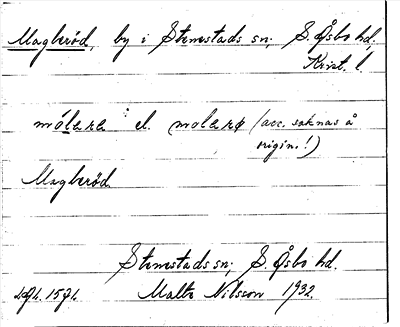 Magleröd, by i Stenestads sn; S. Åsbo hd,
Krist. l.
mólara el. molarø (acc. saknas å
origin.!)
Magleröd
Stenestads sn; S. Åsbo hd.
Malte Nilsson 1932.